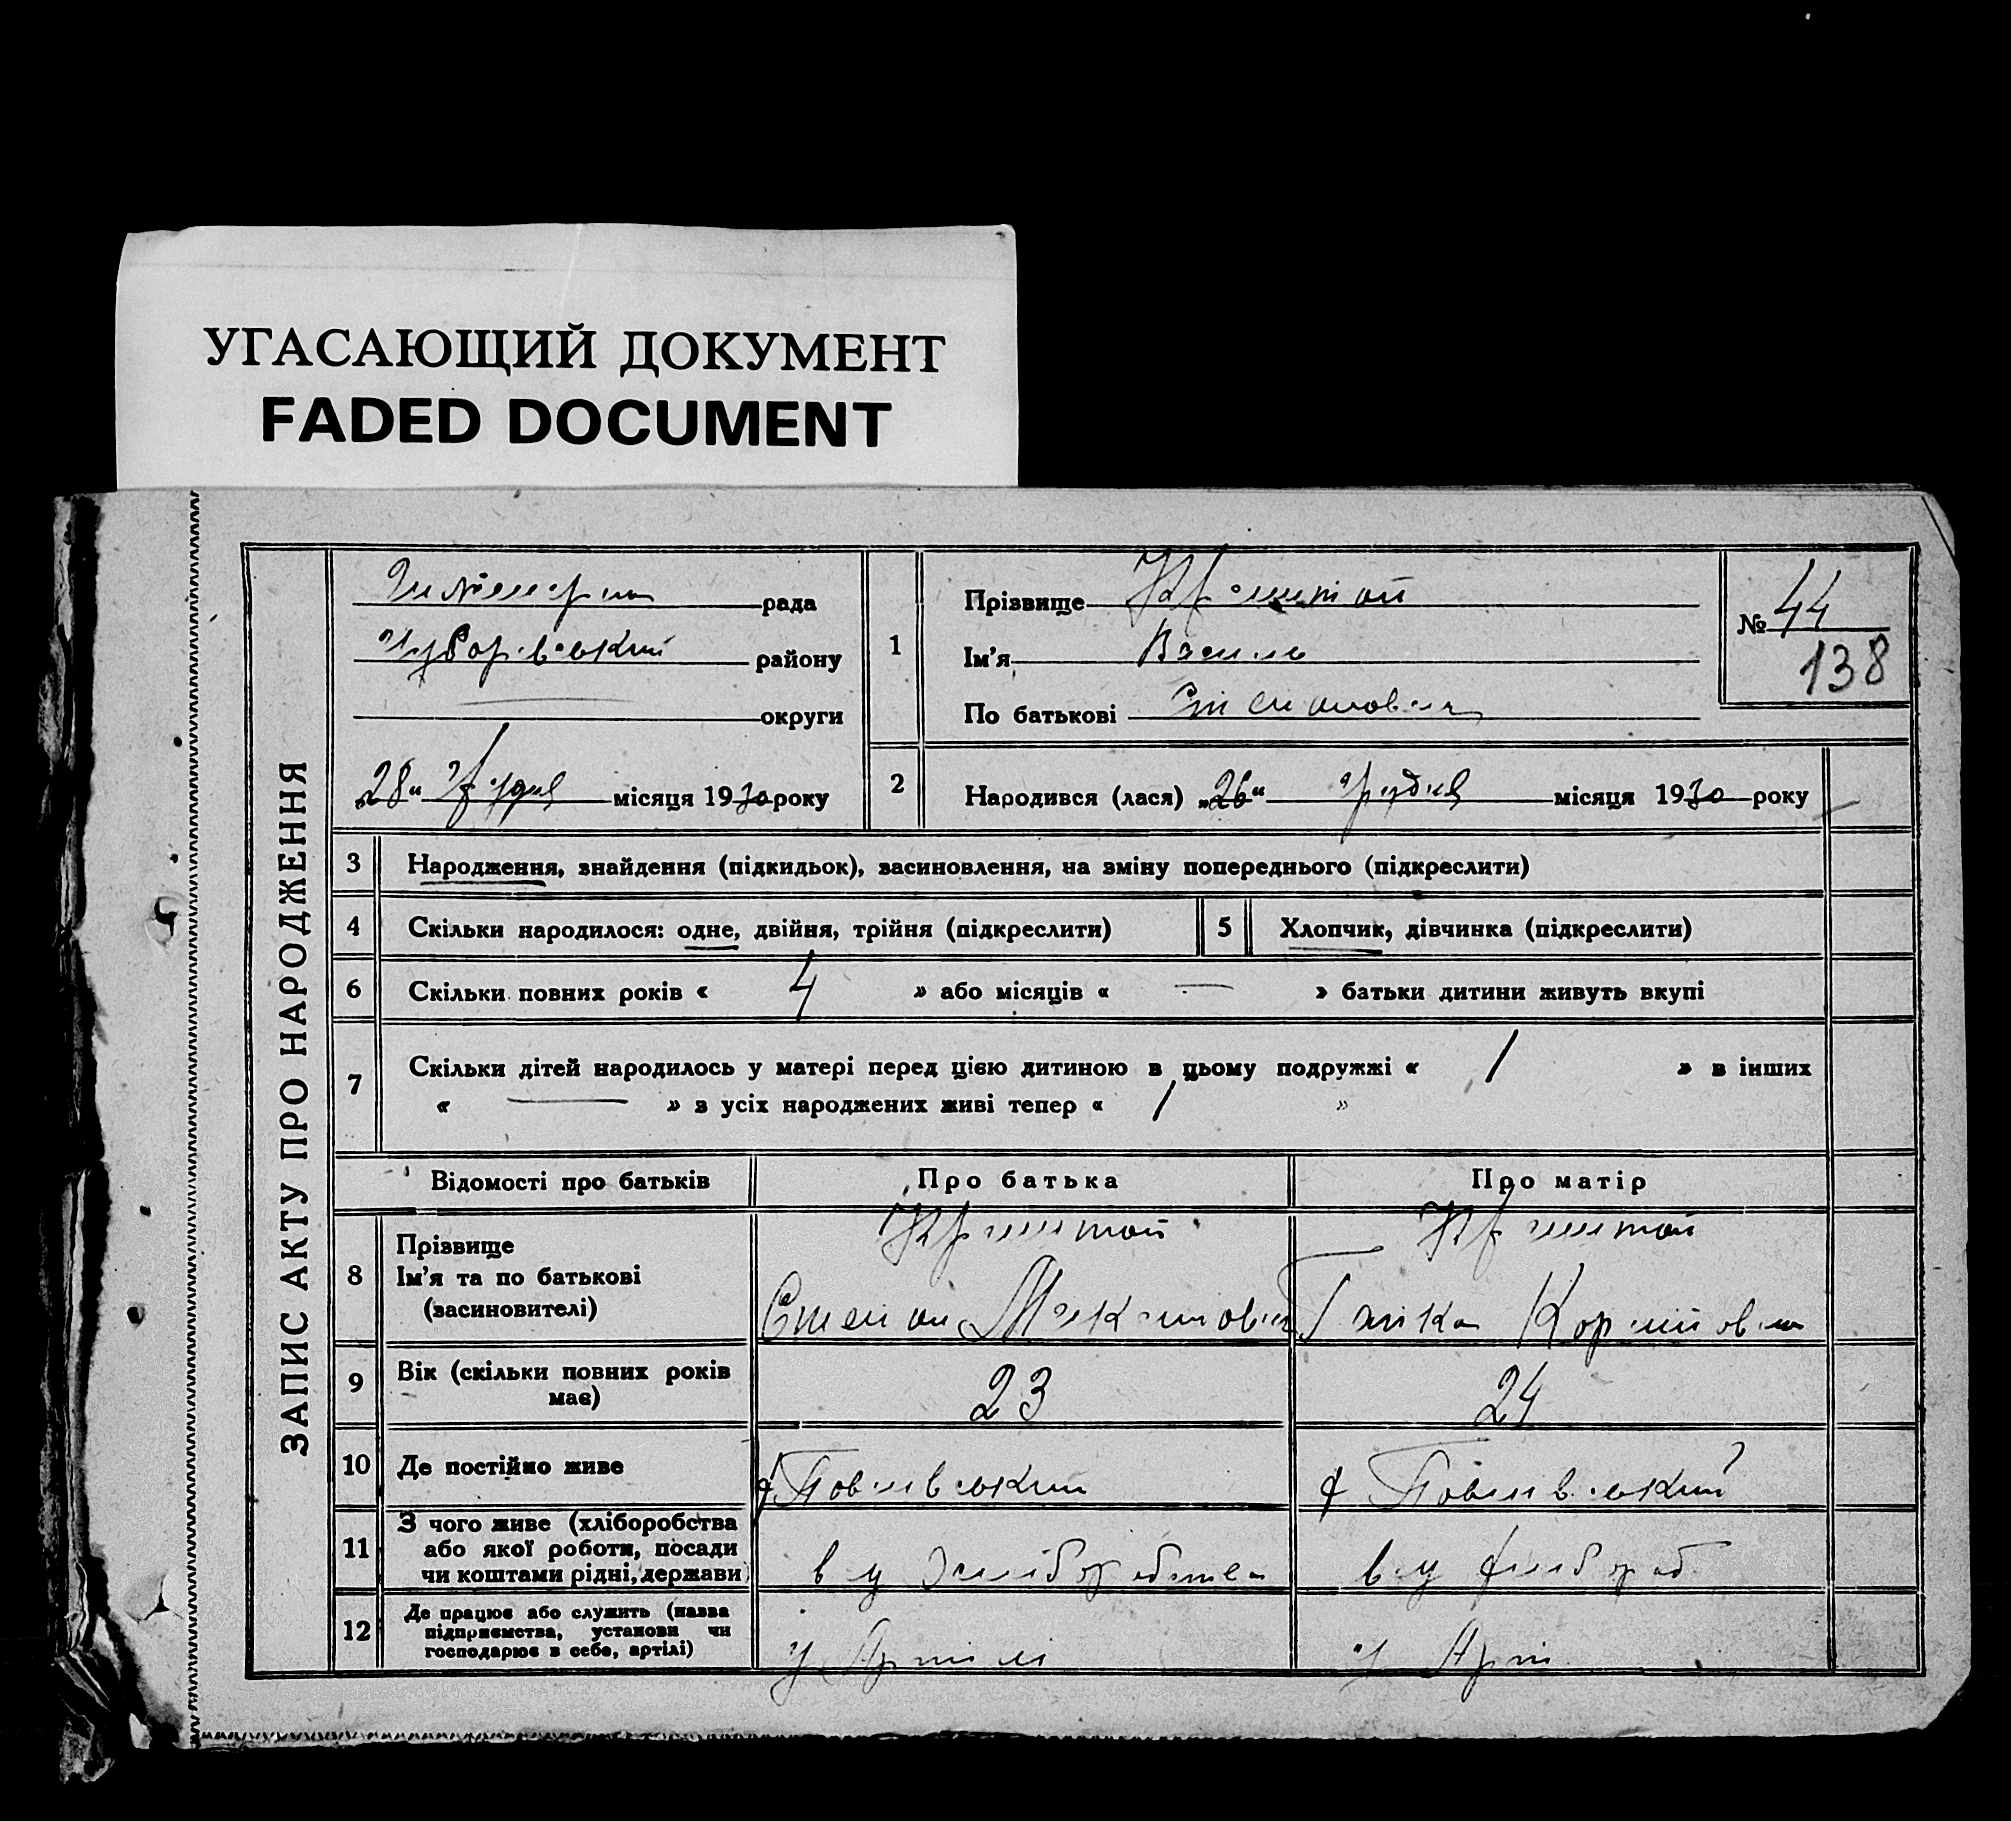 УГАСАЮЩИЙ ДОКУМЕНТ
FADED DOCUMENT
ЗАПИС АКТУ ПРО НАРОДЖЕННЯ
рада
району
округи
„28“ Грудня місяця 1930 року
1
Прізвище
Ім'я Василь
По батькові Степанович
№ 44
138
2
Народився (лася) „26“ грудня місяця 1930 року
3 Народження, знайдення (підкидьок), засиновлення, на зміну попереднього (підкреслити)
4 Скільки народилося: одне, двійня, трійня (підкреслити)
5 Хлопчик, дівчинка (підкреслити)
6 Скільки повних років « 4 » або місяців « — » батьки дитини живуть вкупі
7 Скільки дітей народилось у матері перед цією дитиною в цьому подружжі « 1 » в інших
« — » з усіх народжених живі тепер « 1 »
Відомості про батьків
Про батька
Про матір
8
Прізвище
Ім'я та по батькові
(засиновителі)
Степан
Ганна
9
Вік (скільки повних років
має)
23
24
10 Де постійно живе
11
З чого живе (хліборобства
або якої роботи, посади
чи коштами рідні, держави)
12
Де працює або служить (назва
підприємства, установи чи
господарює в себе, артілі)
у Артілі
у Арт